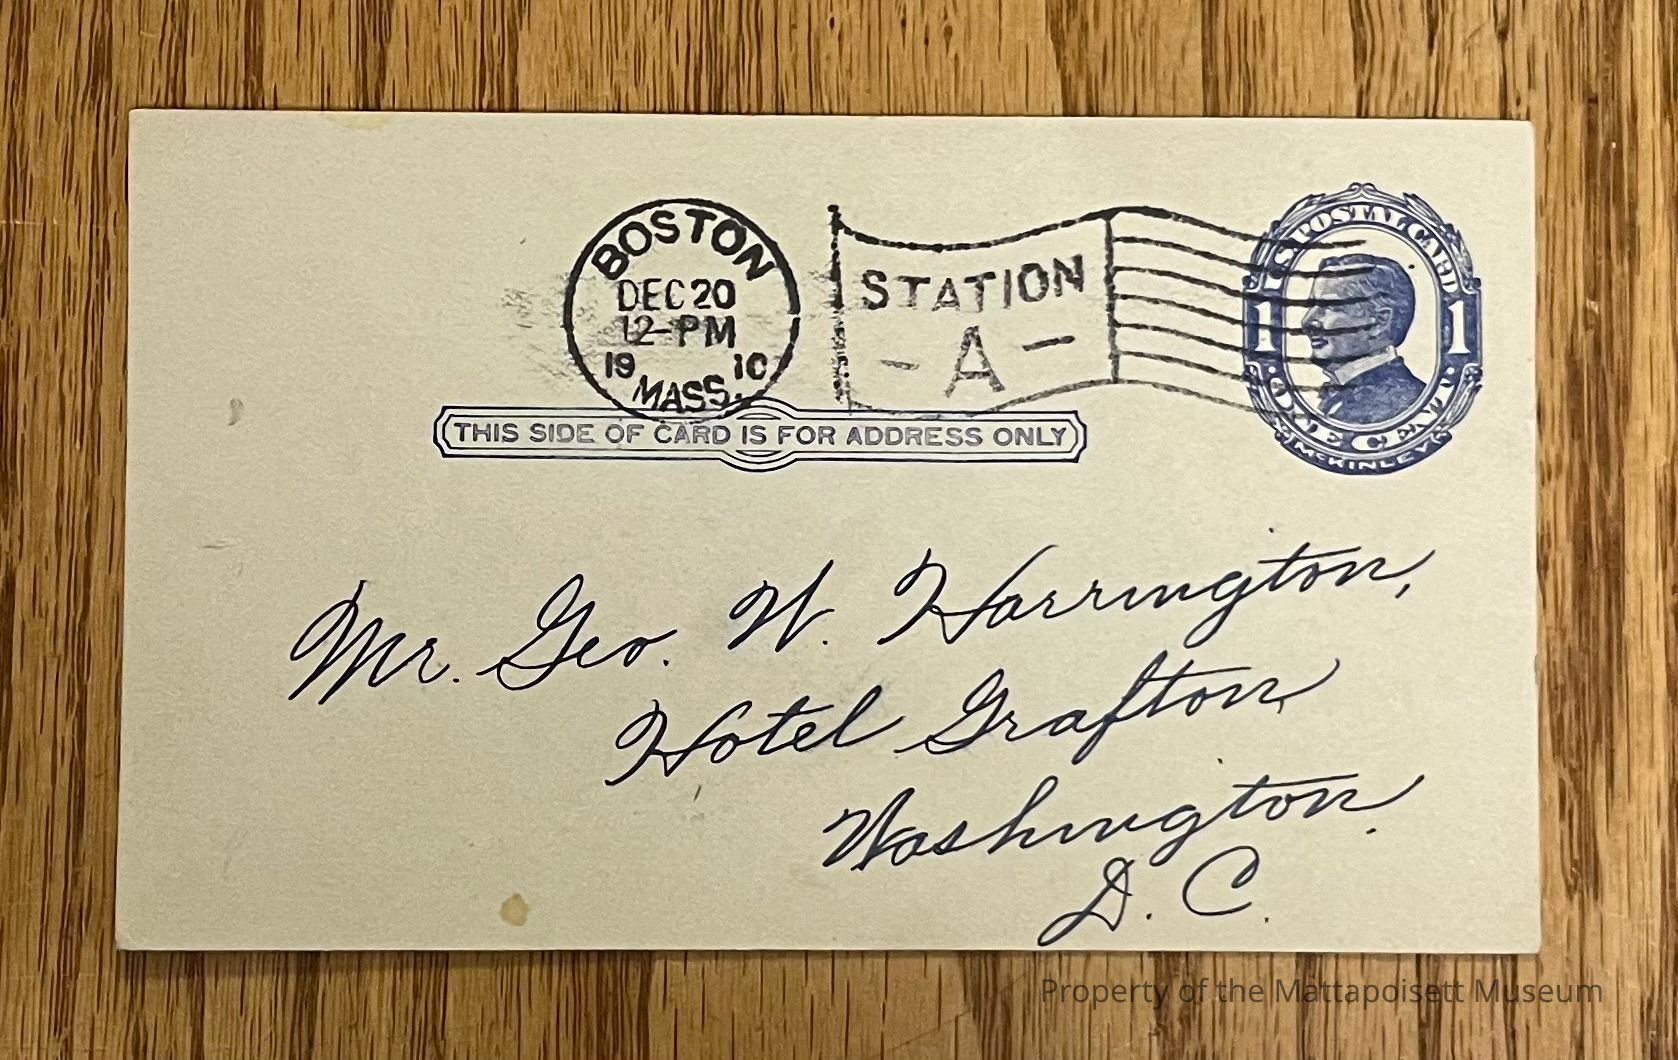 BOSTON
DEC 20
12-PM
19 10
MASS.
STATION
- A -
U.S. POSTAL CARD
1 1
ONE CENT
McKINLEY
THIS SIDE OF CARD IS FOR ADDRESS ONLY
Mr. Geo. W. Harrington,
Hotel Grafton,
Washington.
D. C.
Property of the Mattapoisett Museum